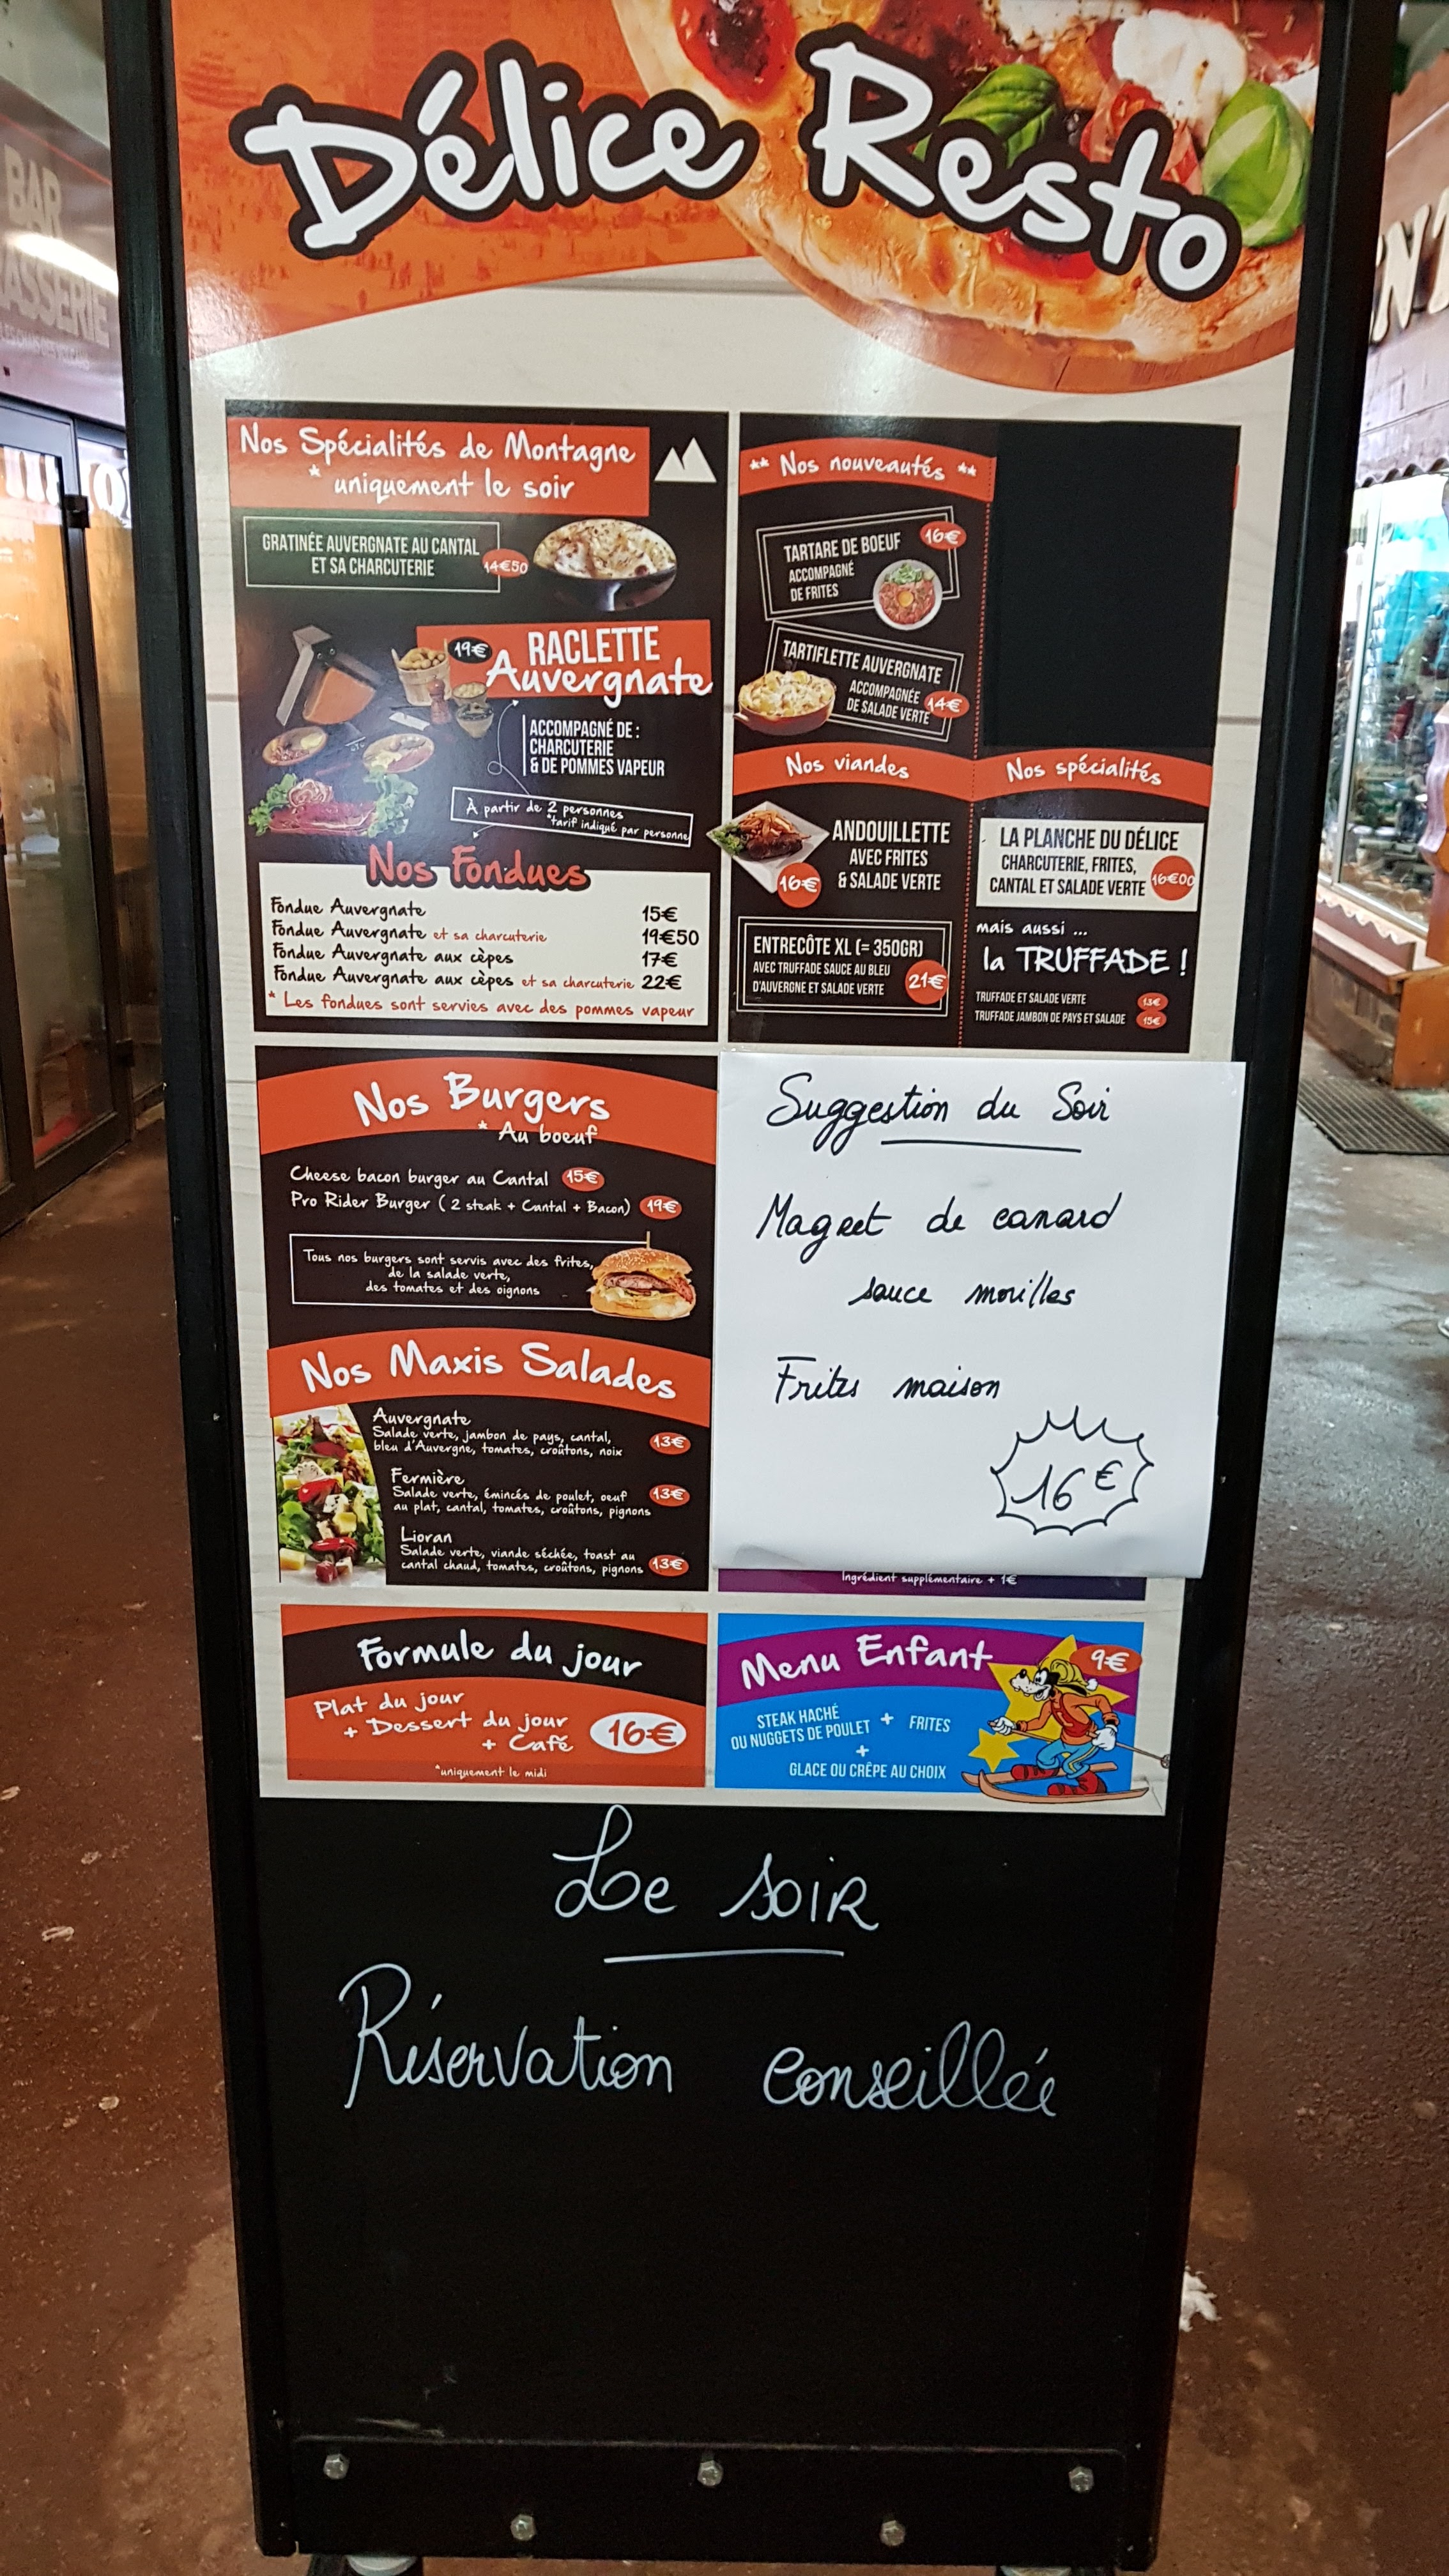 Délice Resto
BAR
Nos Spécialités de Montagne
* uniquement le soir
GRATINÉE AUVERGNATE AU CANTAL
ET SA CHARCUTERIE
14€50
19€
RACLETTE
Auvergnate
ACCOMPAGNÉ DE :
CHARCUTERIE
& DE POMMES VAPEUR
À partir de 2 personnes
*tarif indiqué par personne
Nos Fondues
Fondue Auvergnate 15€
Fondue Auvergnate et sa charcuterie 19€50
Fondue Auvergnate aux cèpes 17€
Fondue Auvergnate aux cèpes et sa charcuterie 22€
* Les fondues sont servies avec des pommes vapeur
** Nos nouveautés **
TARTARE DE BOEUF
ACCOMPAGNÉ
DE FRITES
16€
TARTIFLETTE AUVERGNATE
ACCOMPAGNÉE
DE SALADE VERTE
14€
Nos viandes
ANDOUILLETTE
AVEC FRITES
& SALADE VERTE
16€
ENTRECÔTE XL (= 350GR)
AVEC TRUFFADE SAUCE AU BLEU
D'AUVERGNE ET SALADE VERTE
21€
Nos spécialités
LA PLANCHE DU DÉLICE
CHARCUTERIE, FRITES,
CANTAL ET SALADE VERTE
16€00
mais aussi ...
la TRUFFADE !
TRUFFADE ET SALADE VERTE 13€
TRUFFADE JAMBON DE PAYS ET SALADE 15€
Nos Burgers
* Au boeuf
Cheese bacon burger au Cantal 15€
Pro Rider Burger ( 2 steak + Cantal + Bacon) 19€
Tous nos burgers sont servis avec des frites,
de la salade verte,
des tomates et des oignons
Nos Maxis Salades
Auvergnate
Salade verte, jambon de pays, cantal,
bleu d'Auvergne, tomates, croûtons, noix
13€
Fermière
Salade verte, émincés de poulet, oeuf
au plat, cantal, tomates, croûtons, pignons
13€
Lioran
Salade verte, viande séchée, toast au
cantal chaud, tomates, croûtons, pignons
13€
Suggestion du Soir
Magret de canard
sauce morilles
Frites maison
16€
Ingrédient supplémentaire + 1€
Formule du jour
Plat du jour
+ Dessert du jour
+ Café
16€
*uniquement le midi
Menu Enfant
9€
STEAK HACHÉ
OU NUGGETS DE POULET + FRITES
+
GLACE OU CRÊPE AU CHOIX
Le soir
Réservation conseillée